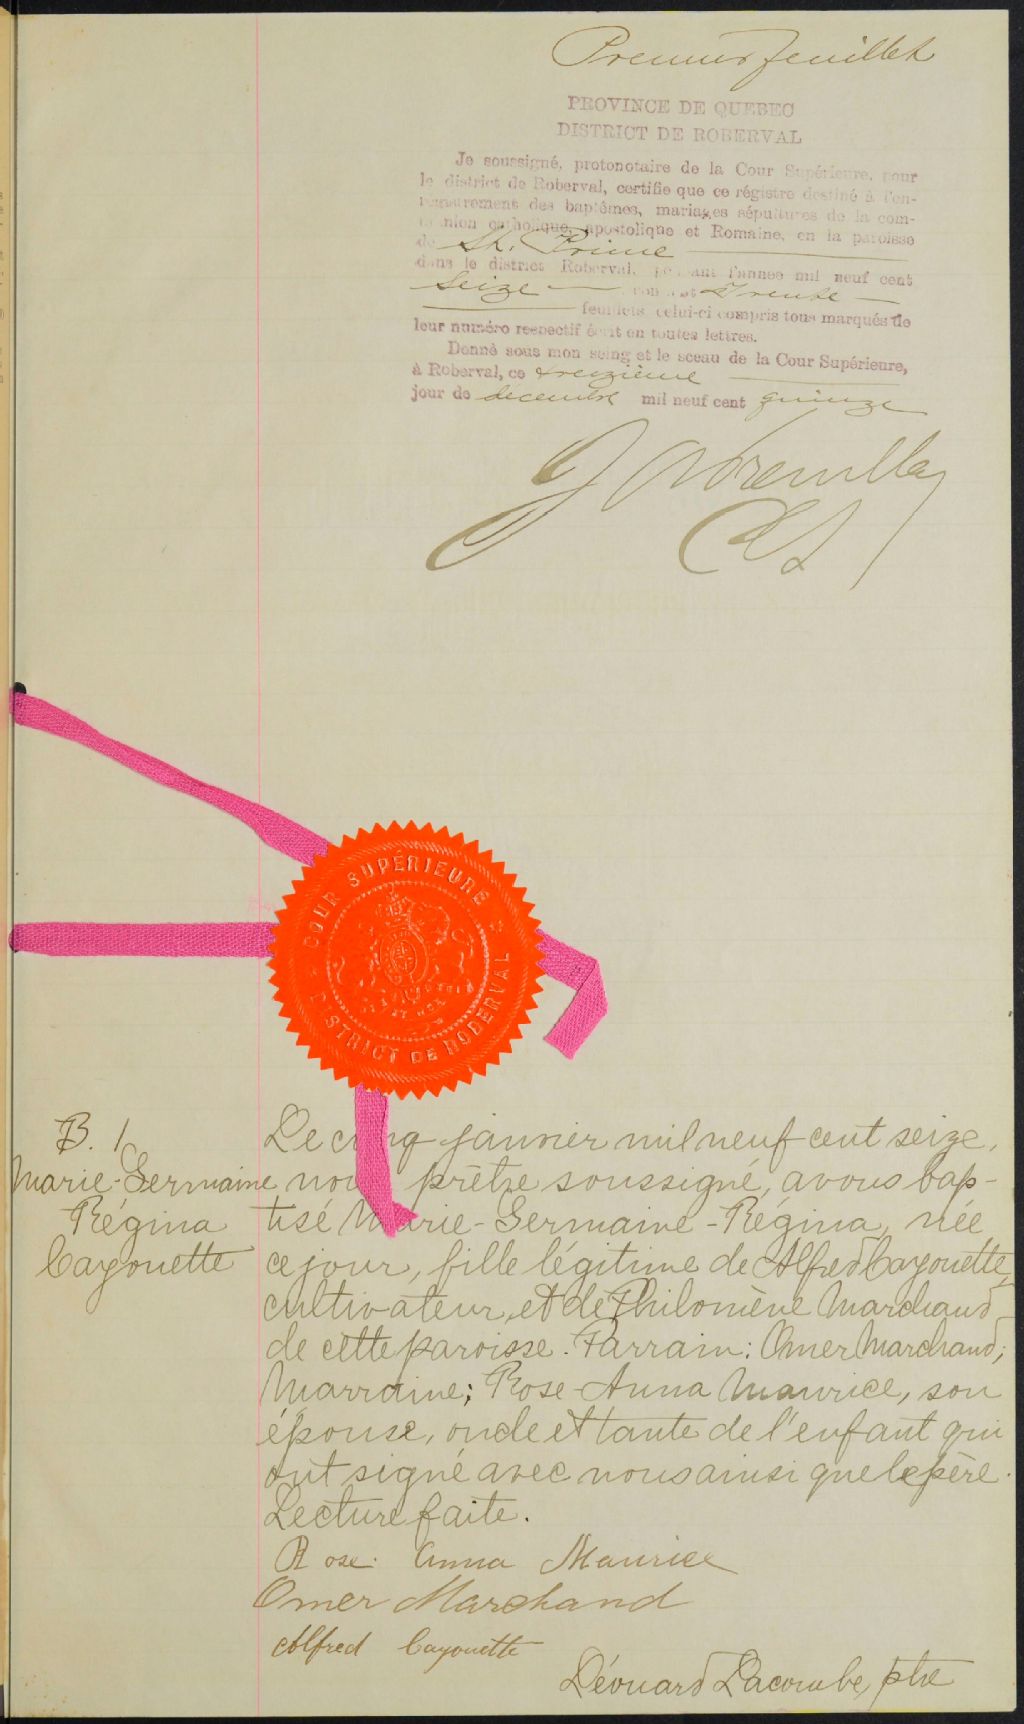 Premier feuillet
PROVINCE DE QUEBEC
DISTRICT DE ROBERVAL
Je soussigné, protonotaire de la Cour Supérieure, pour
le district de Roberval, certifie que ce régistre destiné à l'en-
registrement des baptêmes, mariages sépultures de la com-
munion catholique, apostolique et Romaine, en la paroisse
de St. Prime
dans le district Roberval, pendant l'annee mil neuf cent
Seize contient Trente
feuillets celui-ci compris tous marqués de
leur numéro respectif écrit en toutes lettres.
Donné sous mon seing et le sceau de la Cour Supérieure,
à Roberval, ce treizième
jour de décembre mil neuf cent quinze
COUR SUPÉRIEURE
DISTRICT DE ROBERVAL
B. 1
Marie-Germaine
Régina
Cayouette
Le cinq janvier mil neuf cent seize,
nous prêtre soussigné, avons bap-
tisé Marie-Germaine-Régina, née
ce jour, fille légitime de Alfred Cayouette,
cultivateur, et de Philomène Marchand
de cette paroisse. Parrain: Omer Marchand;
Marraine; Rose-Anna Maurice, son
épouse, oncle et tante de l'enfant qui
ont signé avec nous ainsi que le père.
Lecture faite.
Rose. Anna Maurice
Omer Marchand
Alfred Cayouette
Déouard Lacombe, ptre